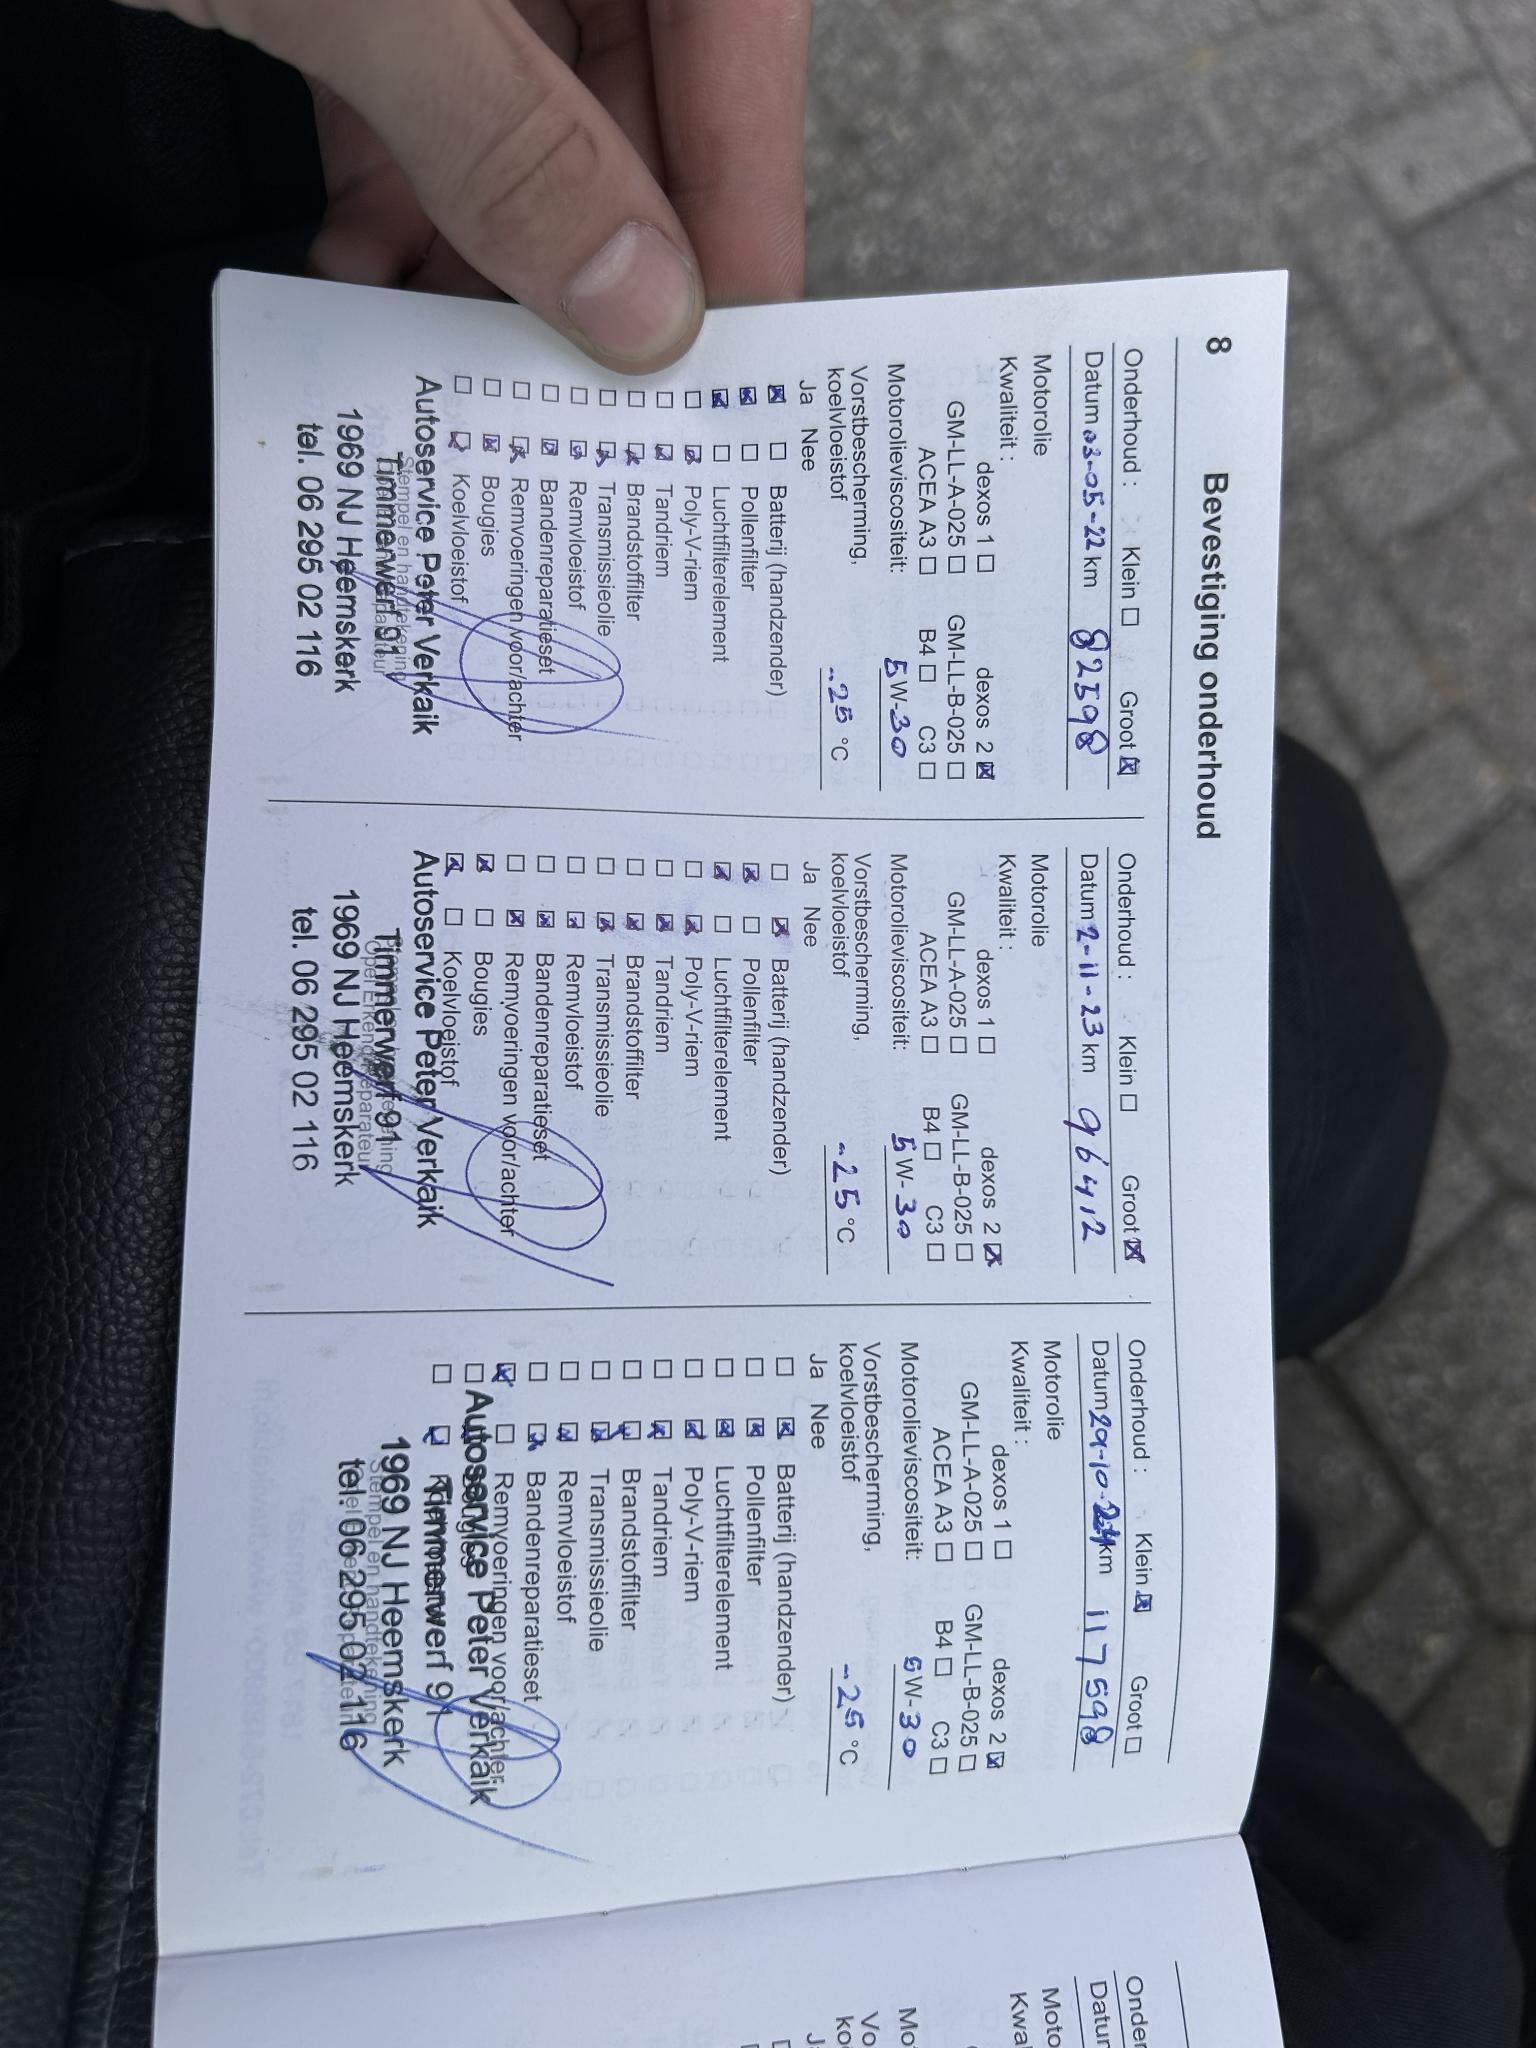 8 Bevestiging onderhoud
Onderhoud : Klein ☐ Groot ☒
Datum 03-05-22 km 82598
Motorolie
Kwaliteit :
dexos 1 ☐ dexos 2 ☒
GM-LL-A-025 ☐ GM-LL-B-025 ☐
ACEA A3 ☐ B4 ☐ C3 ☐
Motorolieviscositeit: 5W-30
Vorstbescherming,
koelvloeistof -25 °C
Ja Nee
☒ ☐ Batterij (handzender)
☒ ☐ Pollenfilter
☒ ☐ Luchtfilterelement
☐ ☒ Poly-V-riem
☐ ☒ Tandriem
☐ ☒ Brandstoffilter
☐ ☒ Transmissieolie
☐ ☒ Remvloeistof
☐ ☒ Bandenreparatieset
☐ ☒ Remvoeringen voor/achter
☐ ☒ Bougies
☐ ☒ Koelvloeistof
Autoservice Peter Verkaik
Stempel en handtekening
Timmerwerf 91
1969 NJ Heemskerk
tel. 06 295 02 116
Onderhoud : Klein ☐ Groot ☒
Datum 2-11-23 km 96412
Motorolie
Kwaliteit :
dexos 1 ☐ dexos 2 ☒
GM-LL-A-025 ☐ GM-LL-B-025 ☐
ACEA A3 ☐ B4 ☐ C3 ☐
Motorolieviscositeit: 5W-30
Vorstbescherming,
koelvloeistof -25 °C
Ja Nee
☐ ☒ Batterij (handzender)
☒ ☐ Pollenfilter
☒ ☐ Luchtfilterelement
☐ ☒ Poly-V-riem
☐ ☒ Tandriem
☐ ☒ Brandstoffilter
☐ ☒ Transmissieolie
☐ ☒ Remvloeistof
☐ ☒ Bandenreparatieset
☐ ☒ Remvoeringen voor/achter
☒ ☐ Bougies
☒ ☐ Koelvloeistof
Autoservice Peter Verkaik
Timmerwerf 91
1969 NJ Heemskerk
tel. 06 295 02 116
Onderhoud : Klein ☒ Groot ☐
Datum 29-10-24 km 117598
Motorolie
Kwaliteit :
dexos 1 ☐ dexos 2 ☒
GM-LL-A-025 ☐ GM-LL-B-025 ☐
ACEA A3 ☐ B4 ☐ C3 ☐
Motorolieviscositeit: 5W-30
Vorstbescherming,
koelvloeistof -25 °C
Ja Nee
☐ ☒ Batterij (handzender)
☐ ☒ Pollenfilter
☐ ☒ Luchtfilterelement
☐ ☒ Poly-V-riem
☐ ☒ Tandriem
☐ ☒ Brandstoffilter
☐ ☒ Transmissieolie
☐ ☒ Remvloeistof
☐ ☒ Bandenreparatieset
☒ ☐ Remvoeringen voor/achter
Autoservice Peter Verkaik
Timmerwerf 91
1969 NJ Heemskerk
Stempel en handtekening
tel. 06 295 02 116